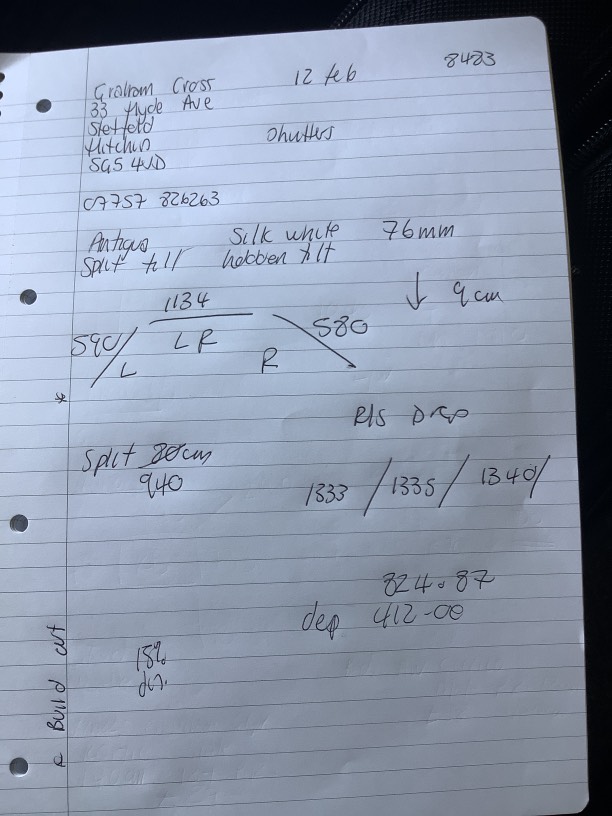 Graham Cross 12 feb 8483
33 Hyde Ave
Stotfold
Hitchin Shutters
SG5 4
07757 826263
Antigua Silk white 76mm
Split tilt hidden tilt
↓ 9cm
1134
590 / L R 580
L R
R/S Drop
Split 80cm
940
1333 / 1335 / 1340/
824.87
dep 412-00
18%
dis.
Build out